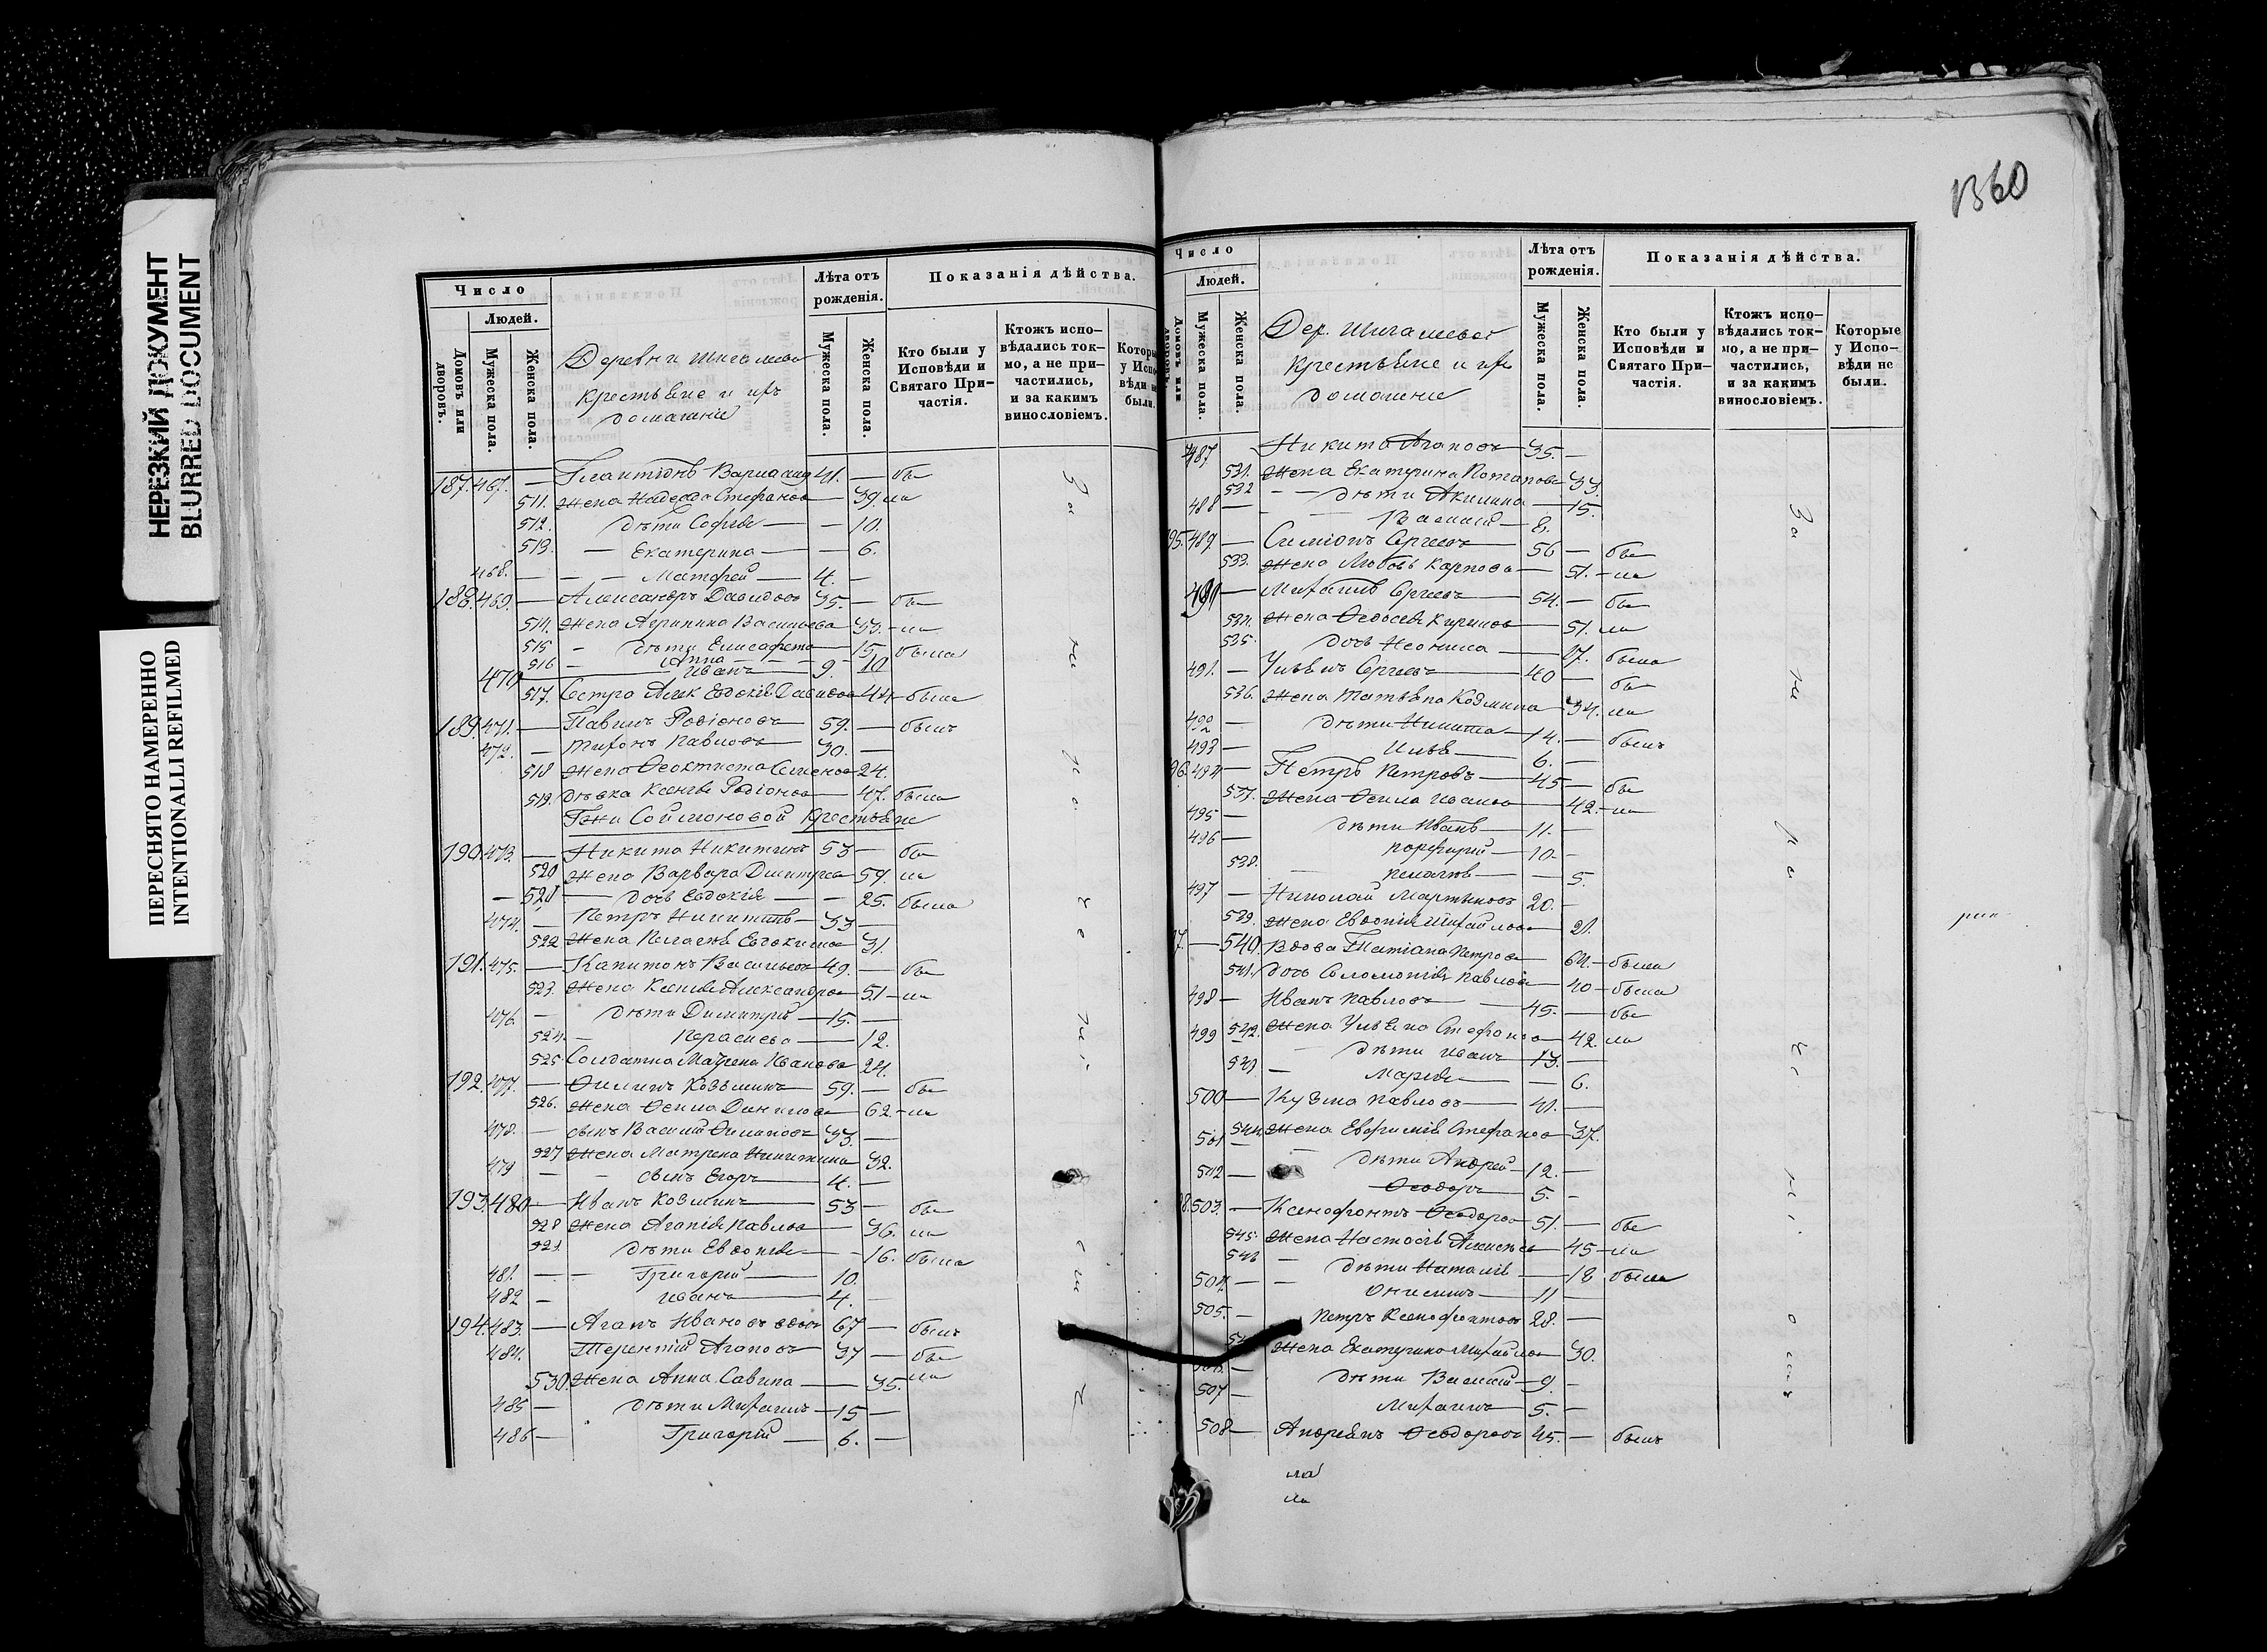 НЕРЕЗКИЙ ДОКУМЕНТ
BLURRED DOCUMENT
ПЕРЕСНЯТО НАМЕРЕННО
INTENTIONALLI REFILMED
Число
Людей.
Домовъ или дворовъ.
Мужеска пола.
Женска пола.
Деревни
крестьяне и ихъ
домашніе
Лѣта отъ рожденія.
Мужеска пола.
Женска пола.
Показанія дѣйства.
Кто были у Исповѣди и Святаго Причастія.
Ктожъ исповѣдались токмо, а не причастились, и за какимъ винословіемъ.
Которые у Исповѣди не были.
187. 467. — 41. — бы
511. Жена Надежда Стефанова — 39. ла
512. дѣти Софья — — 10.
513. — Екатерина — — 6.
468. — — — Матфей — 4. —
188. 469. — Александръ Давидовъ 35. — бы
514. Жена Агрипина Васильева 33. — ла
515 — дѣти Елисавета — 15. была
516 — Анна — — — 10
470 Иванъ — 9. —
517. Сестра Алек Евдокія Давидова 44 — была
189. 471. — Павелъ Родіоновъ — 59. — былъ
472. — Тихонъ Павловъ — 30. —
518 Жена Феоктиста Семенова 24.
519. дѣвка Ксенья Родіонова — 47. была
Гжи Соймоновой Крестьяне
190. 473. — Никита Никитинъ 53 — бы
520 Жена Варвара Дмитрева — 59. ла
— 521 — дочь Евдокія — — 25. была
474. — Петръ Никитинъ — 33 —
522 Жена Пелагея Евдокимова 31.
191. 475. — Капитонъ Васильевъ 49. — бы
523. Жена Ксенья Александрова — 51 — ла
476. — дѣти Димитрій — 15. —
524. — Параскева — 12.
525. Солдатка Матрена Иванова 24.
192. 477. — Филипъ Козьминъ — 59. — бы
526. Жена Фекла Данилова — 62. — ла
478. — сынъ Василій Филиповъ 33. —
527 Жена Матрена Никитина 32.
479 — — сынъ Егоръ — 4. —
193. 480 — Иванъ Козминъ — 53 — бы
528 Жена Агапія Павлова — 36. ла
529. дѣти Евдокія — — 16. была
481. — — Григорій — 10.
482 — Иванъ — 4. —
194. 483. — Агапъ Ивановъ вдовъ 67 — былъ
484. Терентій Агаповъ — 37 — бы
530. Жена Анна Савина — 35. ла
485 — дѣти Михаилъ — 15 —
486 — Григорій — 6. —
1360
Число
Людей.
Домовъ или дворовъ.
Мужеска пола.
Женска пола.
Дер.
крестьяне и ихъ
домашніе
Лѣта отъ рожденія.
Мужеска пола.
Женска пола.
Показанія дѣйства.
Кто были у Исповѣди и Святаго Причастія.
Ктожъ исповѣдались токмо, а не причастились, и за какимъ винословіемъ.
Которые у Исповѣди не были.
487 Никита Агаповъ — 35. —
531. Жена Екатерина Потапова 33.
532 — — дѣти Акилина — 15.
488 — — Василій — 8.
95. 489. — Симіонъ Сергеевъ — 56 — бы
533. Жена Любовь Карпова — 51. — ла
490 — Михаилъ Сергеевъ — 54. — бы
534. Жена Федосья Кирилова — 51. ла
535. дочь Неонила — 17. была
491. — Ульянъ Сергеевъ — 40 — бы
536. Жена Татьяна Козмина — 34. ла
492 — дѣти Никита — 14. — былъ
493 — Илья — 6. —
96. 494 — Петръ Петровъ — 45 — бы
537. Жена Фекла Иванова — 42. — ла
495 — дѣти Иванъ — 11. —
496 — Порфирій — 10. —
538. — Пелагея — — 5.
497 — Николай Мартыновъ 20. —
539. Жена Евдокія Михайлова 21.
7. — 540. Вдова Татіана Петрова — 64. — была
541. дочь Соломонія Павлова — 40 — была
498 — Иванъ Павловъ — 45. — бы
542. Жена Ульяна Стефанова — 42. ла
499 — дѣти Иванъ — 13. —
543 — Марья — — 6.
500 — Кузма Павловъ — 41. —
544. Жена Евфимія Стефанова — 37.
501 — дѣти Андрей — 12. —
502 — Феодоръ — 5. —
8. 503. — Ксенофонтъ Феодоровъ 51. — бы
545. Жена Настасія Алексѣева — 45 — ла
546 — дѣти Наталія — 18. была
504. — — Онисимъ — 11 —
505. — Петръ Ксенофонтовъ 28. —
Жена Екатерина Михайлова — 30.
506. — дѣти Василій — 9. —
507 — Михаилъ — 5. —
508 — Андреянъ Феодоровъ 45. — былъ
ла
ла